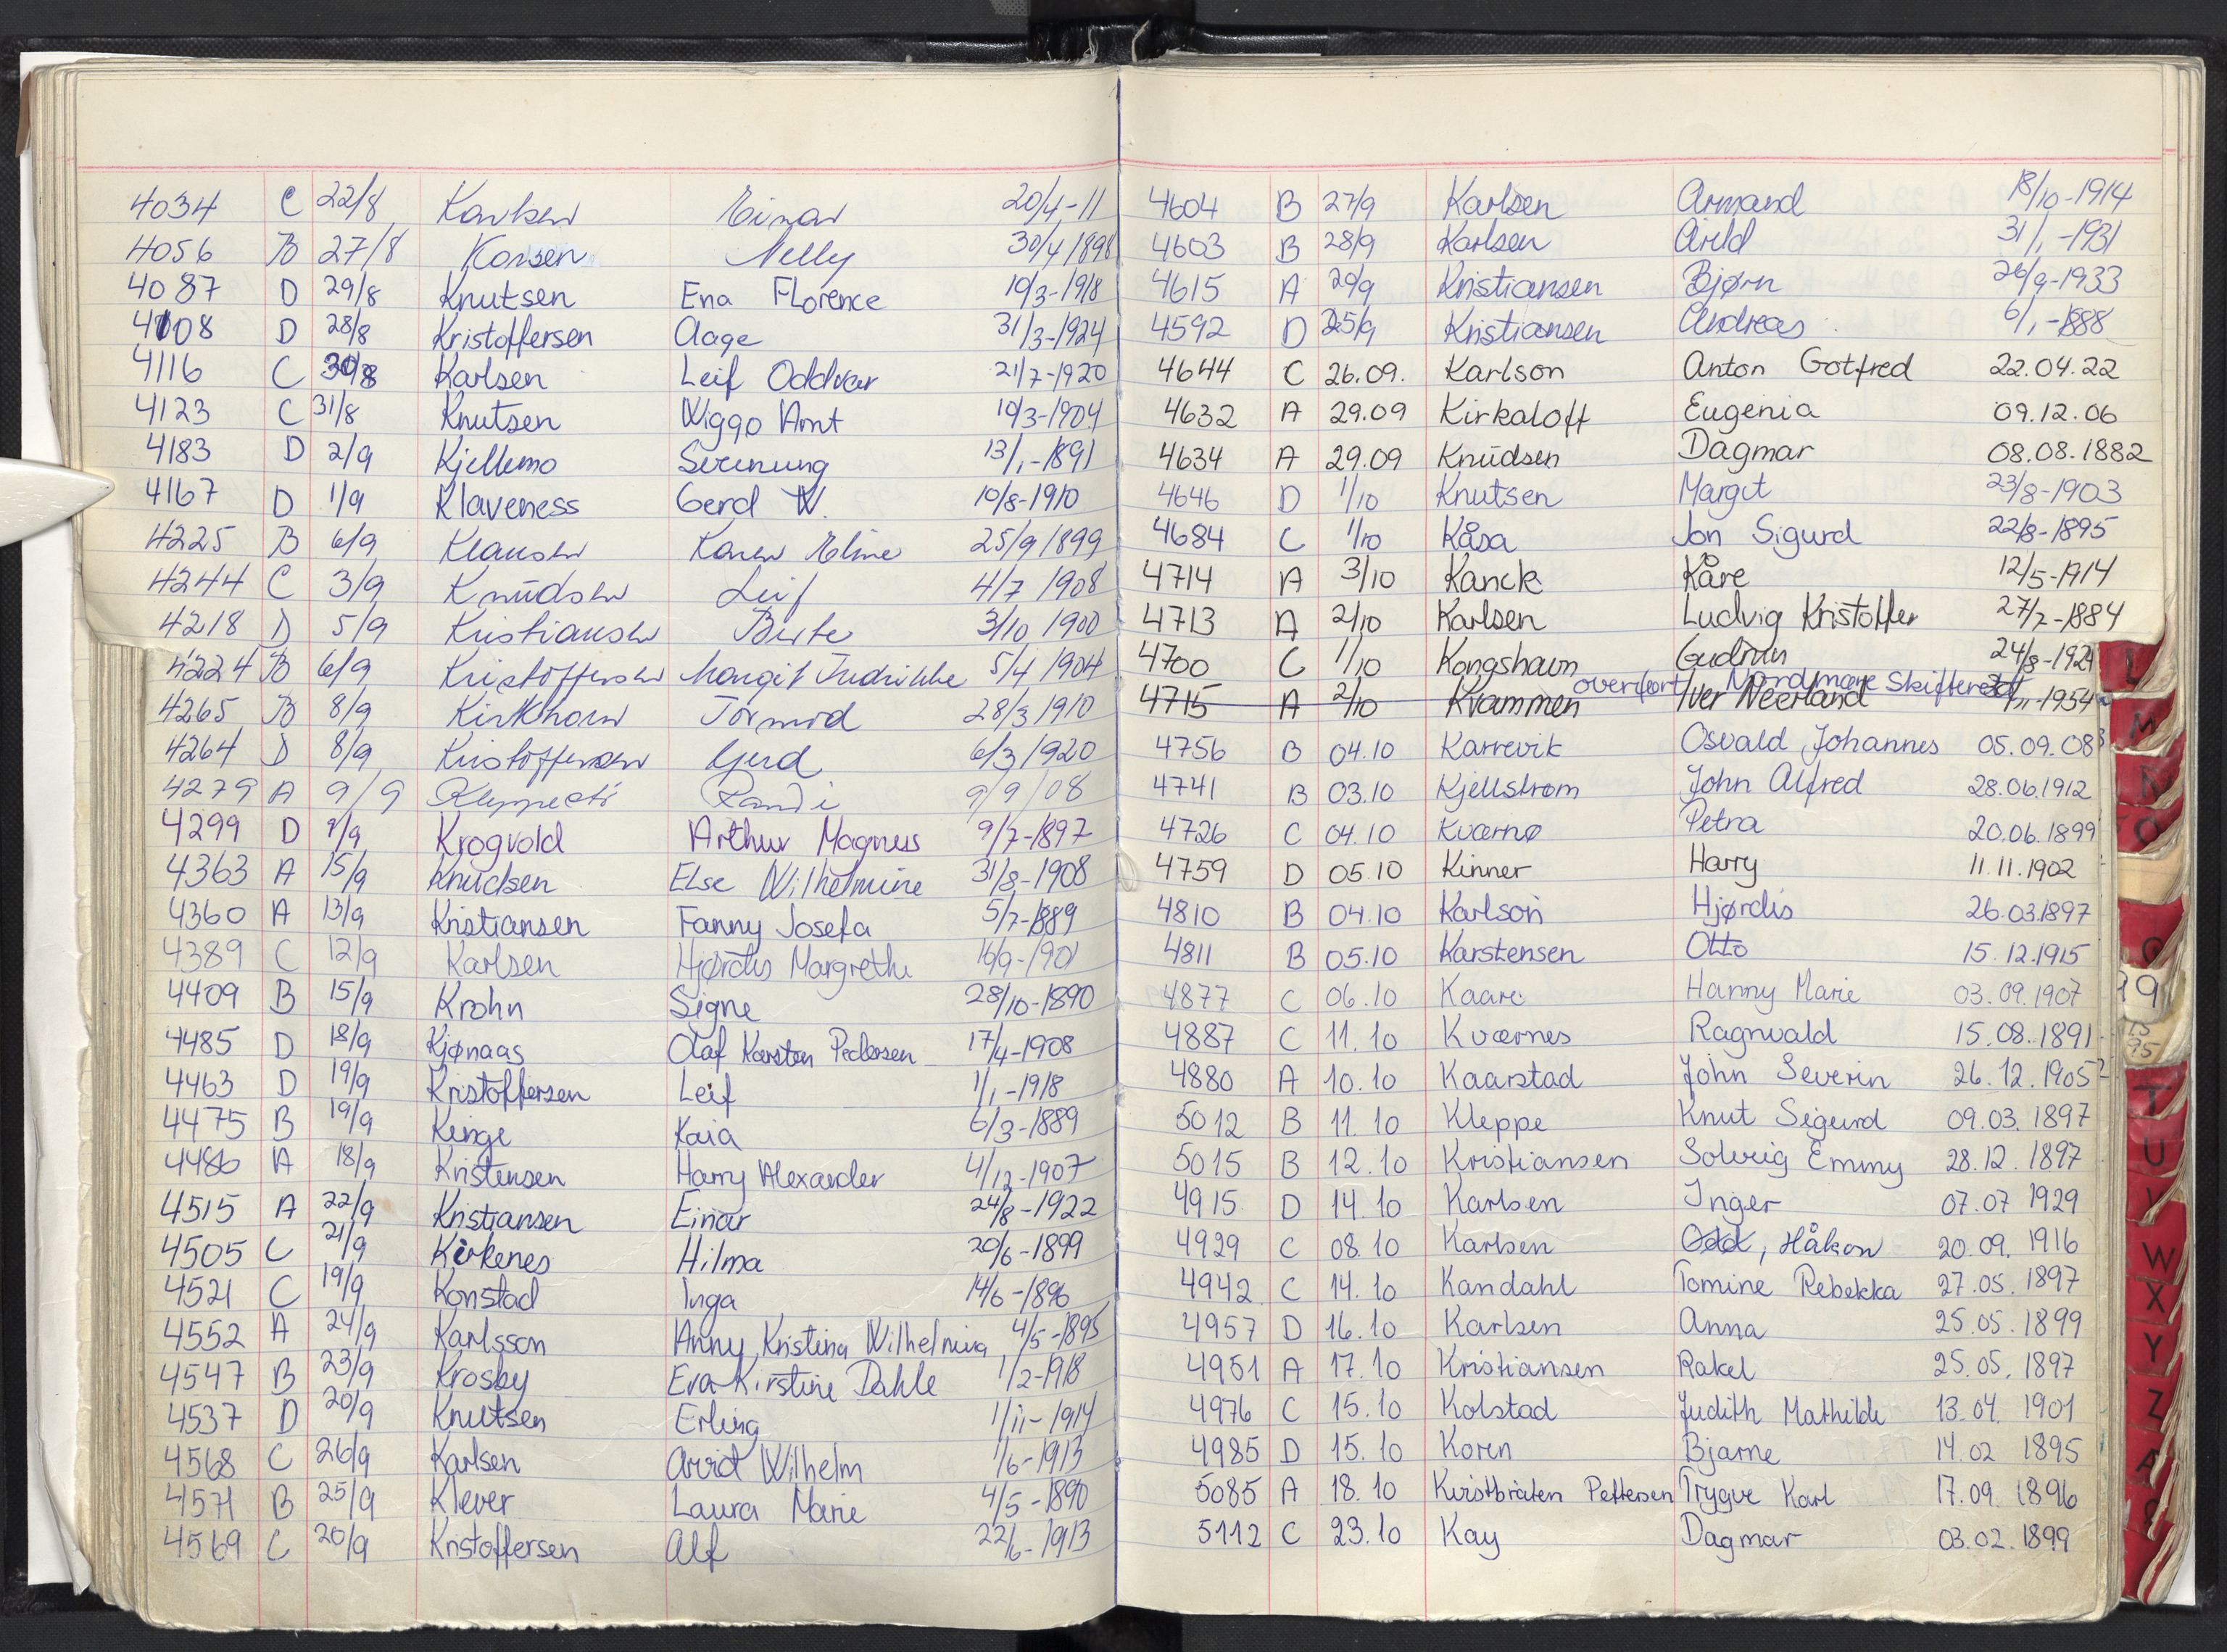 4034 C 22/8 Karlsen Einar 20/4-11
4056 B 27/8 Korsen Nelly 30/4 1898
4087 D 29/8 Knutsen Ena Florence 10/3-1918
4108 D 28/8 Kristoffersen Aage 31/3-1924
4116 C 30/8 Karlsen Leif Oddvar 21/7-1920
4123 C 31/8 Knutsen Wiggo Arnt 10/3-1904
4183 D 2/9 Kjellemo Sveinung 13/1-1891
4167 D 1/9 Klaveness Gerd W. 10/8-1910
4225 B 6/9 Klausen Karen Eline 25/9 1899
4244 C 3/9 Knudsen Leif 4/7 1908
4218 D 5/9 Kristiansen Berte 3/10 1900
4224 B 6/9 Kristoffersen Margit Fredrikke 5/4 1904
4265 B 8/9 Kirkhorn Tormod 28/3 1910
4264 D 8/9 Kristoffersen Gerd 6/3 1920
4279 A 9/9 Randi 9/9/08
4299 D 9/9 Krogvold Arthur Magnus 9/7-1897
4363 A 15/9 Knudsen Else Wilhelmine 31/8-1908
4360 A 13/9 Kristiansen Fanny Josefa 5/7-1889
4389 C 12/9 Karlsen Hjørdis Margrethe 16/9-1901
4409 B 15/9 Krohn Signe 28/10-1890
4485 D 18/9 Kjønaas Olaf Karsten Pedersen 17/4-1908
4463 D 19/9 Kristoffersen Leif 1/1-1918
4475 B 19/9 Kinge Kaia 6/3-1889
4486 A 18/9 Kristensen Harry Alexander 4/12-1907
4515 A 22/9 Kristiansen Einar 24/8-1922
4505 C 21/9 Kirkenes Hilma 20/6-1899
4521 C 19/9 Konstad Inga 14/6-1896
4552 A 24/9 Karlsson Anny Kristina Wilhelmina 4/5-1895
4547 B 23/9 Krosby Eva Kirstine Dahle 1/2-1918
4537 D 20/9 Knutsen Erling 1/11-1914
4568 C 26/9 Karlsen Arvid Wilhelm 1/6-1913
4571 B 25/9 Klever Laura Marie 4/5-1890
4569 C 20/9 Kristoffersen Alf 22/6-1913
4604 B 27/9 Karlsen Armand 18/10-1914
4603 B 28/9 Karlsen Arild 31/1-1931
4615 A 29/9 Kristiansen Bjørn 26/9-1933
4592 D 25/9 Kristiansen Andreas 6/1-1888
4644 C 26.09. Karlson Anton Gotfred 22.04.22
4632 A 29.09 Kirkaloff Eugenia 09.12.06
4634 A 29.09 Knudsen Dagmar 08.08.1882
4646 D 1/10 Knutsen Margit 23/8-1903
4684 C 1/10 Kåsa Jon Sigurd 22/8-1895
4714 A 3/10 Kanck Kåre 12/5-1914
4713 A 2/10 Karlsen Ludvig Kristoffer 27/7-1884
4700 C 1/10 Kongshavn Gudrun 24/8-1921
overført Nordmøre Skifterett
4715 A 2/10 Kvammen Iver Neerland 1954
4756 B 04.10 Karrevik Osvald Johannes 05.09.08
4741 B 03.10 Kjellstrøm John Alfred 28.06.1912
4726 C 04.10 Kværnø Petra 20.06.1899
4759 D 05.10 Kinner Harry 11.11.1902
4810 B 04.10 Karlson Hjørdis 26.03.1897
4811 B 05.10 Karstensen Otto 15.12.1915
4877 C 06.10 Kaare Hanny Marie 03.09.1907
4887 C 11.10 Kværnes Ragnvald 15.08.1891
4880 A 10.10 Kaarstad John Severin 26.12.1905
5012 B 11.10 Kleppe Knut Sigurd 09.03.1897
5015 B 12.10 Kristiansen Solveig Emmy 28.12.1897
4915 D 14.10 Karlsen Inger 07.07 1929
4929 C 08.10 Karlsen Odd, Håkon 20.09. 1916
4942 C 14.10 Kandahl Tomine Rebekka 27.05. 1897
4957 D 16.10 Karlsen Anna 25.05. 1899
4951 A 17.10 Kristiansen Rakel 25.05. 1897
4976 C 15.10 Kolstad Judith Mathilde 13.04. 1901
4985 D 15.10 Koren Bjarne 14.02 1895
5085 A 18.10 Kvistbråten Pettersen Trygve Karl 17.09. 1896
5112 C 23.10 Kay Dagmar 03.02. 1899
L
M
N
O
T
U
V
W
X
Y
Z